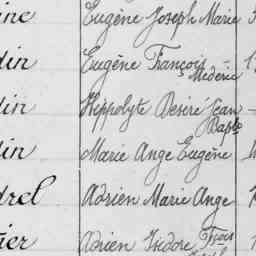 ine Eugène Joseph Marie
din Eugène François
Médéric
din Hippolyte Désiré Jean
Bapte
din Marie Ange Eugène
drel Adrien Marie Ange
ier Adrien Isidore Fçois